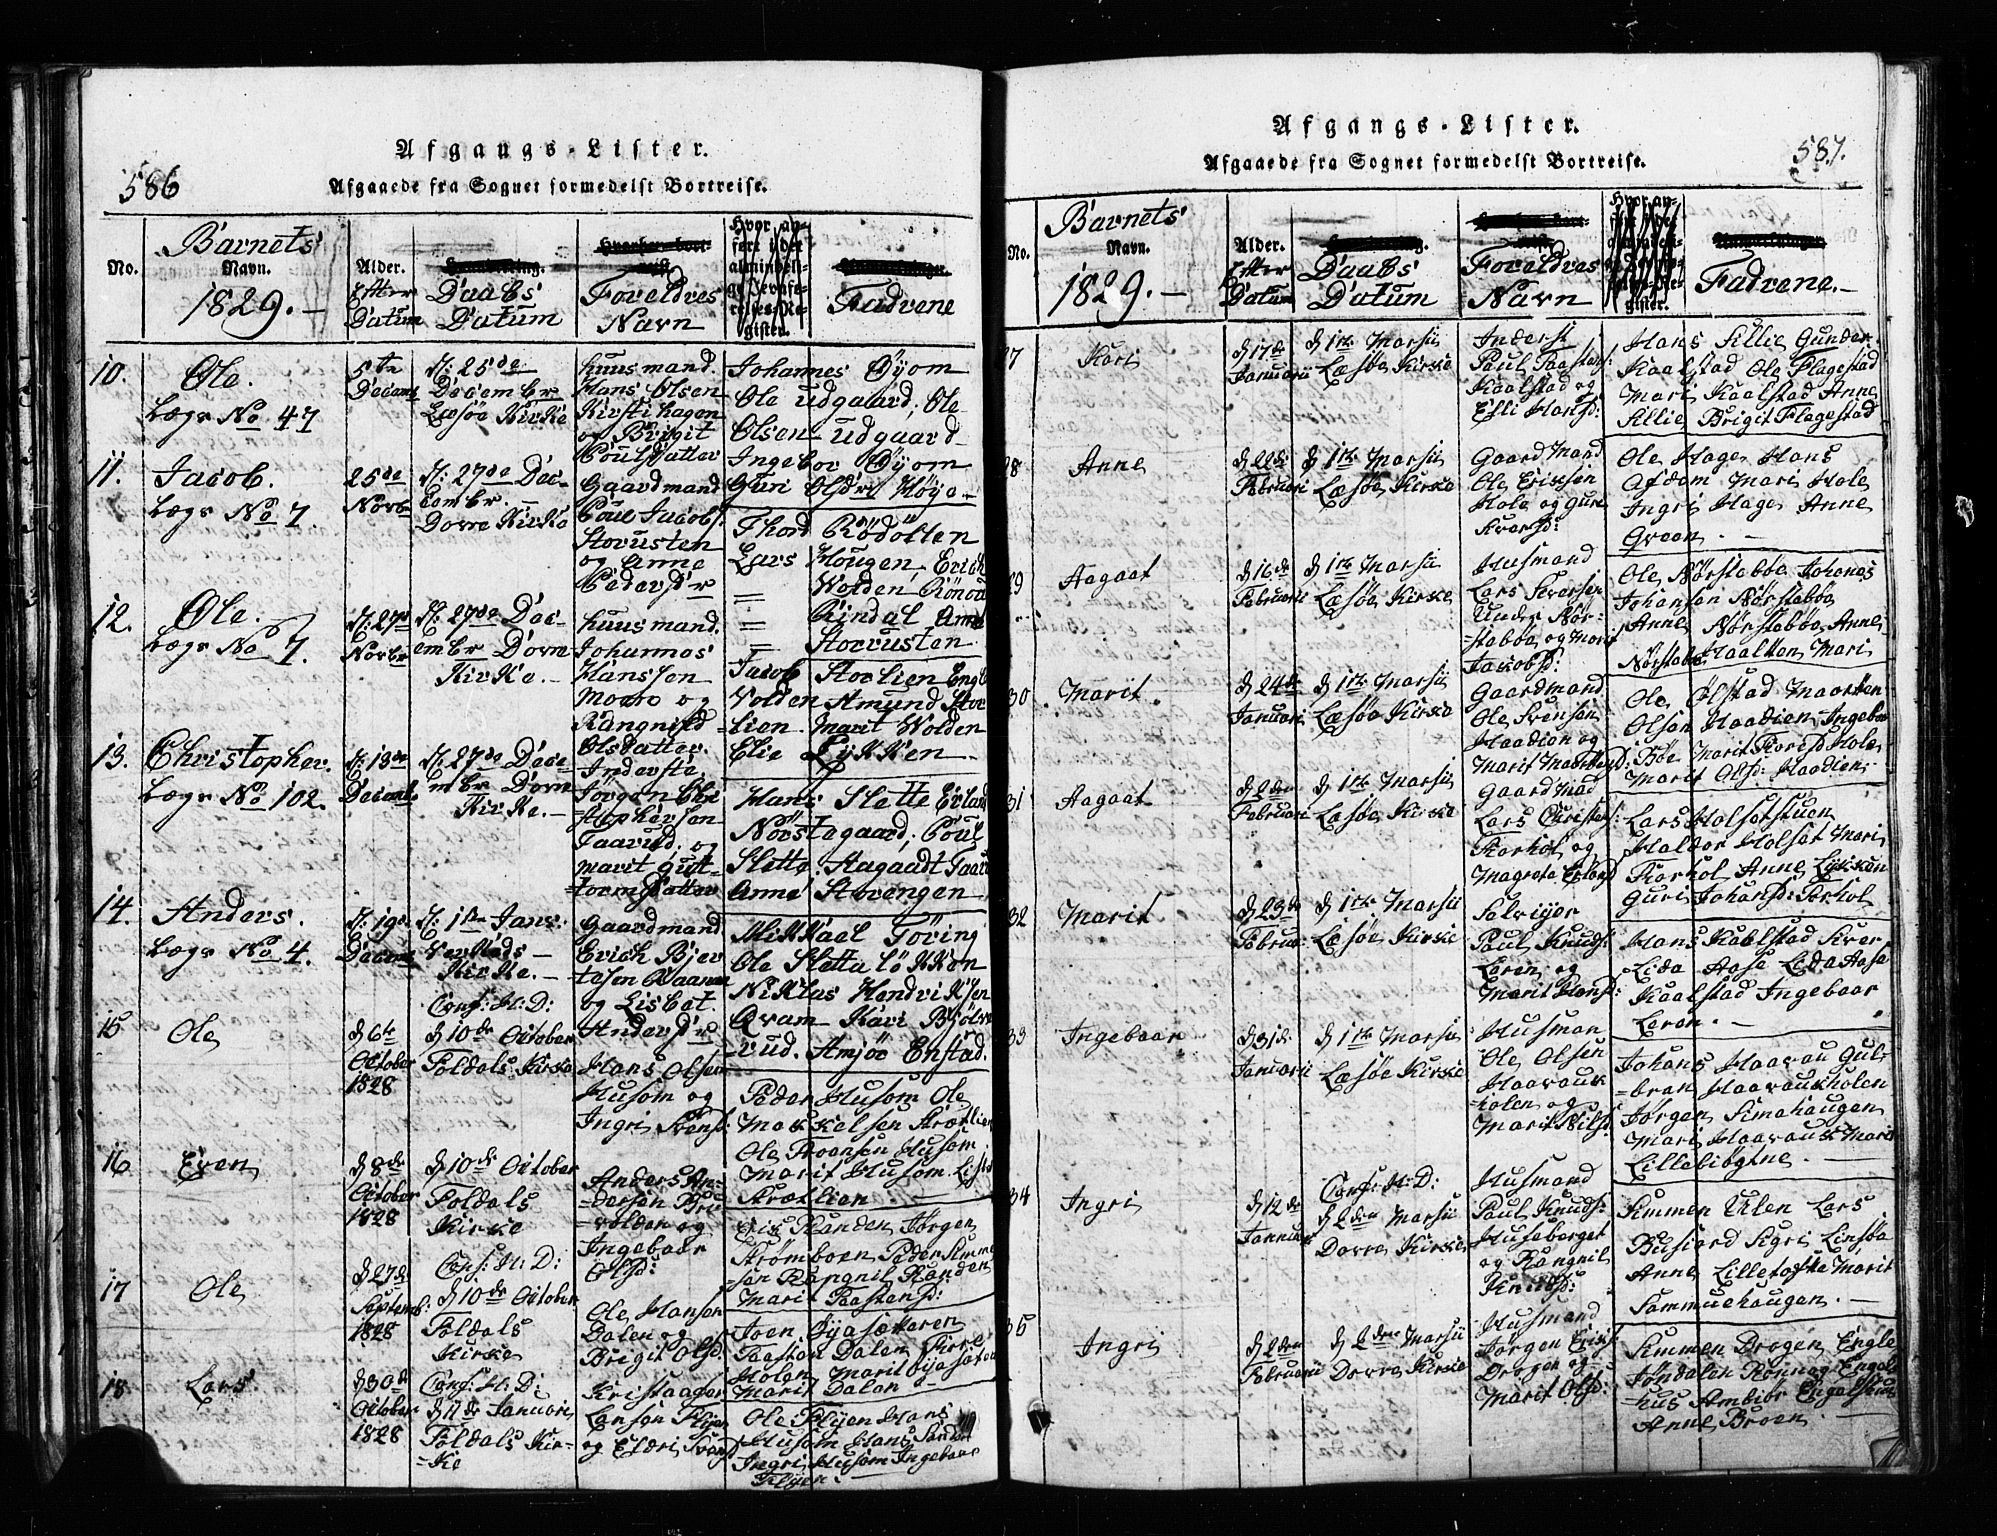 586
Afgangs-Lister.
Afgaaede fra Sognet formedelst Bortreise.
No.
Barnets
Navn.
1829. —
Alder.
Efter
Datum
Daabs
Datum
Foreldres
Navn
Hvor an-
ført i det
almindeli-
ge Jevnfø-
relses-Re-
gister.
Fadrene
10.
Ole.
Lægs No 47
5te
Decemb
D: 25de
Decembr
Læsøe Kirke
huusmand.
Hans Olsen
Kirstihagen
og Brigit
Poulsdatter
Johannes Øyom
Ole udgaard, Ole
Olsen udgaard
Ingebor Øyom
Guri Olsdr Høye
11.
Jacob.
Lægs No 7.
25de
Novbr
D: 27de Dec-
embr. —
Dovre Kirke
Gaardmand
Poul Jacobs:
Storusten
og Anne
Pedersdr
Thord Rödölten
Lars Hougen, Erich
Wolden, Rönou
Rindal Anne
Storusten
12.
Ole.
Lægs No 7.
D: 27de
Novbr
D: 27de Dec-
embr Dovre
Kirke. —
huusmand.
Johannes
Hanssen
Moxe og
Rangnild
Olsdatter.
Jacob Storlien Engle
Wolden Amund Stor
-lien Marit Wolden
Elie Lykken.
13.
Christopher.
Lægs No 102.
D: 18de
Decemb
D: 27de Dece-
mbr Dovre
Kirke. —
Inderste.
Jörgen Chri
-stophersen
Taarud, og
Marit Gutt-
-tormsdatter
Hans Slette Erland
Nörstegaard, Poul
Slette. Aagaadt Taarud
Anne Storengen
14.
Anders.
Lægs No 4.
D: 19de
Decemb
D: 1te Jans:
—
Kirke. —
Gaardmand
Erich Bjer
tesen Qvaam
og Lisbet
Andersdr
Mikkael Töring
Ole Slettalökken
Niklas Hendriksen
Qvam Kari Bjölve
-rud. Amjöe Enstad.
15
Ole
d 6te
October
1828
Conf: H: D:
d 10de October
Foldals Kirke
Hans Olsen
Husom og
Ingri Svensd:
Peder Husom Ole
Mekkelsen Krætlien
Ole Steensen Husom
Marit Husom. List
Krætlien —
16
Even
d 8de
October
1828
d 10de October
Foldals
Kirke
Anders An-
dersen Bru-
-volden og
Ingebaar
Olsd:
Eis Randen Jørgen
Strømboen, Peder Simme
-sen Rangnil Randen
Marit Paastensd:
17
Ole
d 27de
Septemb:
1828
Conf: H: D:
d 10de October
Foldals
Kirke
Ole Hansen
Dalen og
Brigit Olsd:
Joen Øyasæteren
Paasten Dalen
Holen, Marit Øyasæteren
Marit Dalen —
18
Lars
d 30de
October
1828
Conf: H: D:
d 11de Januarii
Foldals Kir-
-ke
Kristaafer
Larsen Flyen
og Eldri Svensd
Ole Flyen Hans
Husom Hans
Ingri Husom Ingebaar
Flyen. —
587.
Afgangs-Lister.
Afgaaede fra Sognet formedelst Bortreise.
No.
Barnets
Navn.
1829. —
Alder.
Efter
Datum
Daabs
Datum
Foreldres
Navn
Fadrene. —
27
Kari
d 17de
Januarii
d 1ste Marsii
Læsøe Kirke
Inderst
Paul Paastens:
Kaalstad og
Elli Hansd:
Hans Lillie Gunder
Kaalstad Ole Flagestad
Mari Kaalstad Anne
Lillie, Brigit Flagestad
28
Anne
d 22de
Februari
d 1ste Marsii
Læsøe Kirke
Gaard Mand
Ole Eriksen
Hole og Guri
Iversd:
Ole Hage Hans
Afdem Mari Hole
Ingri Hage Anne
Groen. —
29
Aagaat
d 16de
Februarii
d 1ste Marsii
Læsøe Kirke
Husmand
Lars Iversen
Under Nør-
-stabøe og Marit
Jakobsd:
Ole Nørstabøe Johanes
Johansen Nørstabøe
Anne Nørstabøe, Anne
Nørstabøe Haalten Mari
30
Marit
d 24de
Januarii
d 1ste Marsii
Læsøe Kirke
Gaardmand
Ole Svensen
Haadien og
Marit Maartensd:
Ole Ølstad Maarten
Olsen Haadien, Ingebaar
Bøe Marit Hole
Marit Olsd: Haadien
31
Aagaat
d 2den
Februarii
d 1ste Marsii
Læsøe Kirke
Gaard Mad
Lars Christens:
Storhol og
Magrete Erlandsd
Lars Holsetstuen
Haldor Holset Mari
Storhol Anne, Lykken
Guri Johansd: Storhol
32
Marit
d 23de
Februar
d 1ste Marsii
Læsøe Kirke
Selveier
Paul Knuds:
Leren og
Marit Hansd:
Hans Kaalstad Iver
Lida Aase Lida Aase
Kaalstad Ingebaar
Leren. —
33
Ingebaar
d 31de
Januarii
d 1ste Marsii
Læsøe Kirke
Husman
Ole Olsen
Haavauk-
-holen og
Marit Nilsd:
Johans Haavau Gul-
-bran Haavaukholen
Jørgen Simahaugen
Mari Haavauk Marit
Lillebiøgtne. —
34
Ingri
d 12de
Januar
Conf: H: D:
d 2den Marsii
Dovre Kirke
Husmand
Paul Knuds:
Huseberget
og Rangnil
Knudsd:
Simmen Ulen Lars
Busiord Sigri Linsøe
Anne Marit
Sammuehaugen. —
35
Ingri
d 2den
Februarii
d 2den Marsii
Dovre Kirke
Husmand
Jørgen Eriks
Drogen og
Marit Olsd:
Simmen Drogen Engle
Jøndalen Rønnog Engels-
-hus Ambiør Engelshus
Anne Broen. —